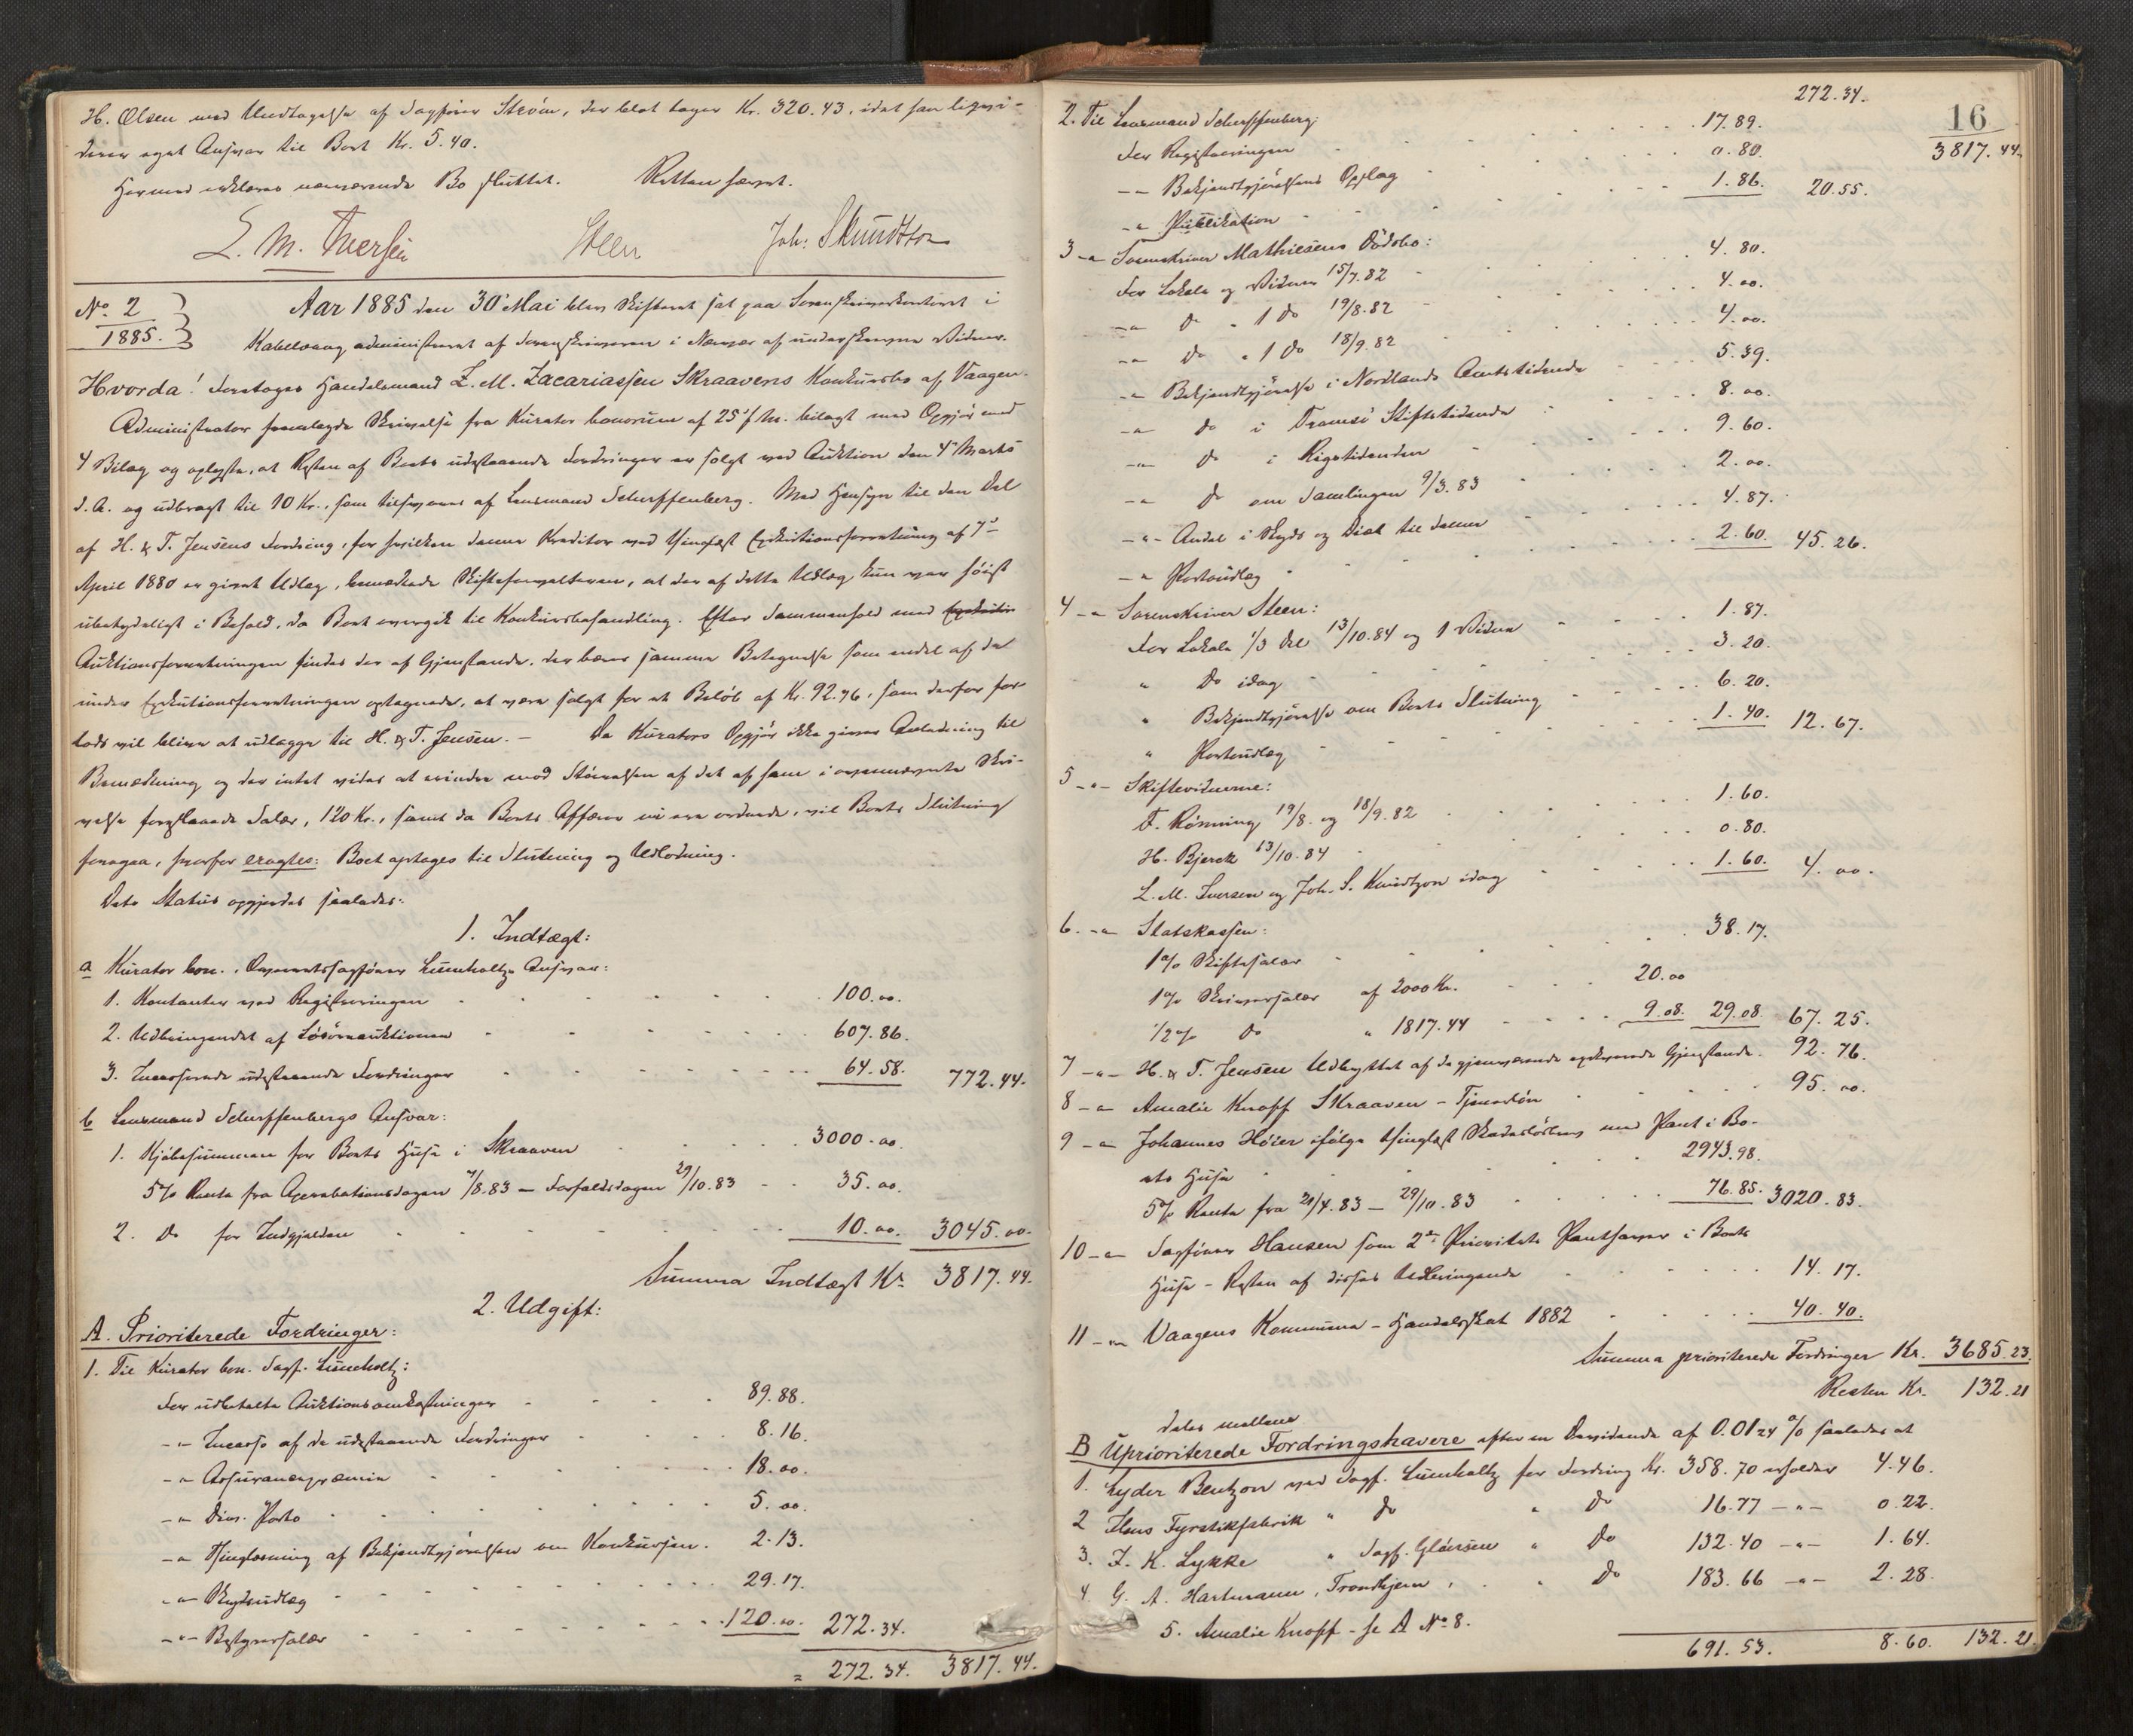 H. Olsen med Undtagelse af Sagfører Strøm, der blot tager Kr. 320.43, idet han liqvi-
derer eget Ansvar til Boet Kr. 5.40.
Hermed erklæres nærværende Bo sluttet. Retten hævet.
L. M. Iversen Steen Joh: SKnudtzon
No. 2
1885.
Aar 1885 den 30' Mai blev Skifteret sat paa Sorenskriverkontoret i
Kabelvaag, administreret af Sorenskriveren i Nærvær af underskrevne Vidner.
Hvorda! Foretoges Handelsmand Z. M. Zacariassen Skraavens Konkursbo af Vaagen.
Administrator fremlagde Skrivelse fra Kurator bonorum af 25' f. M. bilagt med Opgjør med
4 Bilag og oplyste, at Resten af Boets udestaaende Fordringer er solgt ved Auktion den 4' Marts
d. A. og udbragt til 10 Kr., som tilsvares af Lensmand Scherffenberg. Med Hensyn til den Del
af H. & T. Jensens Fordring, for hvilken denne Kreditor ved thinglæst Exekutionsforretning af 7'
April 1880 er givet Udlæg, bemærkede Skifteforvalteren, at der af dette Udlæg kun var høist
ubetydeligt i Behold, da Boet overgik til Konkursbehandling. Efter Sammenhold med
Auktionsforretningen findes der af Gjenstande, der bærer samme Betegnelse som endel af de
under Exekutionsforretningen optagne, at være solgt for et Beløb af Kr. 92.76, som derfor for-
lods vil blive at udlægge til H. & T. Jensen. — Da Kurators Opgjør ikke giver Anledning til
Bemærkning og der intet vides at erindre mod Størrelsen af det af ham i ovennævnte Skri-
velse foreslaaede Salær, 120 Kr., samt da Boets Affærer nu ere ordnede, vil Boets Slutning
foregaa, hvorfor eragtes: Boet optages til Slutning og Udlodning.
Dets Status opgjordes saaledes:
1. Indtægt:
a Kurator bon., Overretssagfører Lumholtz Ansvar:
1. Kontanter ved Registreringen 100.00.
2. Udbringendet af Løsøreauktionen 607.86.
3. Incasserede udestaaende Fordringer 64.58. 772.44.
b Lensmand Scherffenbergs Ansvar:
1. Kjøbesummen for Boets Huse i Skraaven 3000.00.
5% Rente fra Approbationsdagen 7/8.83 — Forfaldsdagen 29/10.83 35.00.
2. Do for Indgjælden 10.00. 3045.00.
Summa Indtægt Kr. 3817.44.
2. Udgift:
A. Prioriterede Fordringer:
1. Til Kurator bon. Sagf. Lumholtz:
For udbetalte Auktionsomkostninger 89.88.
-"- Incasso af de udestaaende Fordringer 8.16.
-"- Assurancepræmie 18.00.
-"- Div. Porto 5.00.
-"- Thinglæsning af Bekjendtgjørelsen om Konkursen. 2.13.
-"- Skydsudlæg 29.17.
-"- Bestyrersalær 120.00. 272.34.
= 272.34. 3817.44.
16
272.34. 3817.44.
2. Til Lensmand Scherffenberg:
For Registreringen 17.89.
-"- Bekjendtgjørelsens Opslag 0.80.
-"- Publikation 1.86. 20.55.
3 -"- Sorenskriver Mathiesens Dødsbo:
For Lokale og Vidner 15/7.82 4.80.
-"- Do " 1 Do 19/8.82 4.00.
-"- Do " 1 Do 18/9.82 4.00.
-"- Bekjendtgjørelse i Nordlands Amtstidende 5.39.
-"- Do i Tromsø Stiftstidende 8.00.
-"- Do i Rigstidenden 9.60.
-"- Do om Samlingen 9/3.83 2.00.
-"- Andel i Skyds og Diæt til denne 4.87.
-"- Portoudlæg 2.60. 45.26.
4 -"- Sorenskriver Steen:
For Lokale 1/3 Del 13/10.84 og 1 Vidne 1.87.
" Do idag 3.20.
" Bekjendtgjørelse om Boets Slutning 6.20.
" Portoudlæg 1.40. 12.67.
5 -"- Skiftevidnerne:
F. Rønning 19/8. og 18/9.82 1.60.
H. Bjerck 13/10.84 0.80.
L. M. Iversen og Joh. S. Knudtzon idag 1.60. 4.00.
6. -"- Statskassen:
1% Skiftesalær 38.17.
1% Skriversalær af 2000 Kr. 20.00
1/2% Do " 1817.44 9.08. 29.08. 67.25.
7 -"- H. & T. Jensen Udbyttet af de gjenværende exeqverede Gjenstande. 92.76.
8 -"- Amalie Knoff Skraaven - Tjenerløn 95.00.
9 -"- Johannes Høier ifølge thinglæst Skadesløsbrev med Pant i Bo-
ets Huse 2943.98.
5% Rente fra 21/4.83 — 29/10.83 76.85. 3020.83.
10 -"- Sagfører Hansen som 2den Prioritets Panthaver i Boets
Huse - Resten af disses Udbringende 14.17.
11 -"- Vaagens Kommune - Handelsskat 1882 40.40.
Summa prioriterede Fordringer Kr. 3685.23.
Resten Kr. 132.21
deles mellem
B Uprioriterede Fordringshavere efter en Dividende af 0.0124 % saaledes at
1. Lyder Bentzon ved Sagf. Lumholtz for Fordring Kr. 358.70 erholder 4.46.
2 Ilens Fyrstikfabrik " Do " Do 16.77 -"- 0.22.
3. I. K. Lykke " Sagf. Gløersen " Do 132.40 -"- 1.64.
4. G. A. Hartmann, Trondhjem, " Do 183.66 -"- 2.28.
5. Amalie Knoff - se A No 8.
691.53. 8.60. 132.21.